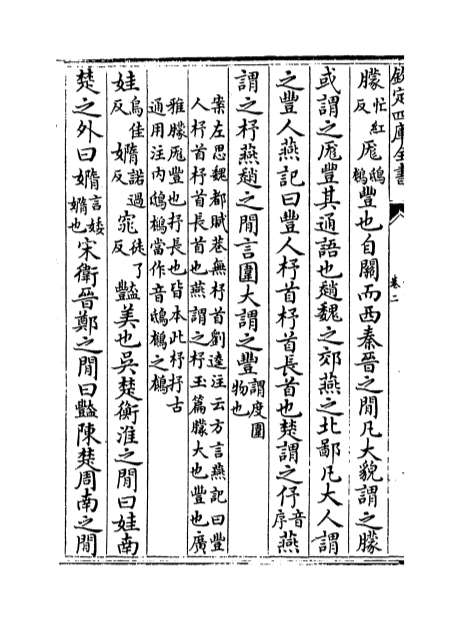 欽定四庫全書
卷二
朦忙紅反厖鴟鵂豐也自關而西秦晉之間凡大貌謂之朦
或謂之厖豐其通語也趙魏之郊燕之北鄙凡大人謂
之豐人燕記曰豐人杼首杼首長首也楚謂之伃音序燕
謂之杼燕趙之間言圍大謂之豐謂度圍物也
案左思魏都賦巷無杼首劉逵注云方言燕記曰豐
人杼首杼首長首也燕謂之杼玉篇朦大也豐也廣
雅朦厖豐也抒長也皆本此杼抒古
通用注內鴟鵂當作音鴟鵂之鵂
娃烏佳反嫷諾過反窕徒了反豔美也吳楚衡淮之間曰娃南
楚之外曰嫷言婑嫷也宋衛晉鄭之間曰豔陳楚周南之間